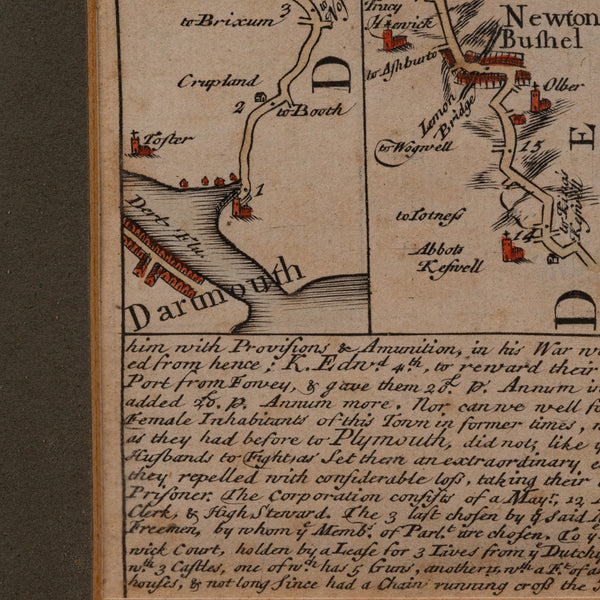 to Brixum
3
to No
Crupland
2
to Booth
D
Foster
1
Dert Flu.
Dartmouth
Tracy
Hewick
to Ashburto
Newton
Bushel
Lemon
Bridge
Olber
to Wogwell
15
E
to Kings
to Totness
14
Abbots
Keswell
D
him with Provisions & Amunition, in his War w
ed from hence; K. Edwd. 4th, to reward their
Port from Fowey, & gave them 20£ pr. Annum i
added 20£. p. Annum more. Nor can we well f
Female Inhabitants of this Town in former times,
as they had before to Plymouth, did not; like
Husbands to Fight; as Set them an extraordinary e
they repelled with considerable loss, taking their
Prisoner. The Corporation consists of a Mayr, 12
Clerk, & High Steward. The 3 last chosen by ye said
Freemen, by whom ye Membs. of Parlt. are chosen. To y
wick Court, holden by a Lease for 3 Lives from ye Dutchy
wth. 3 Castles, one of wch has 5 Guns, another wth a Ft. of
houses, & not long Since had a Chain running cross the